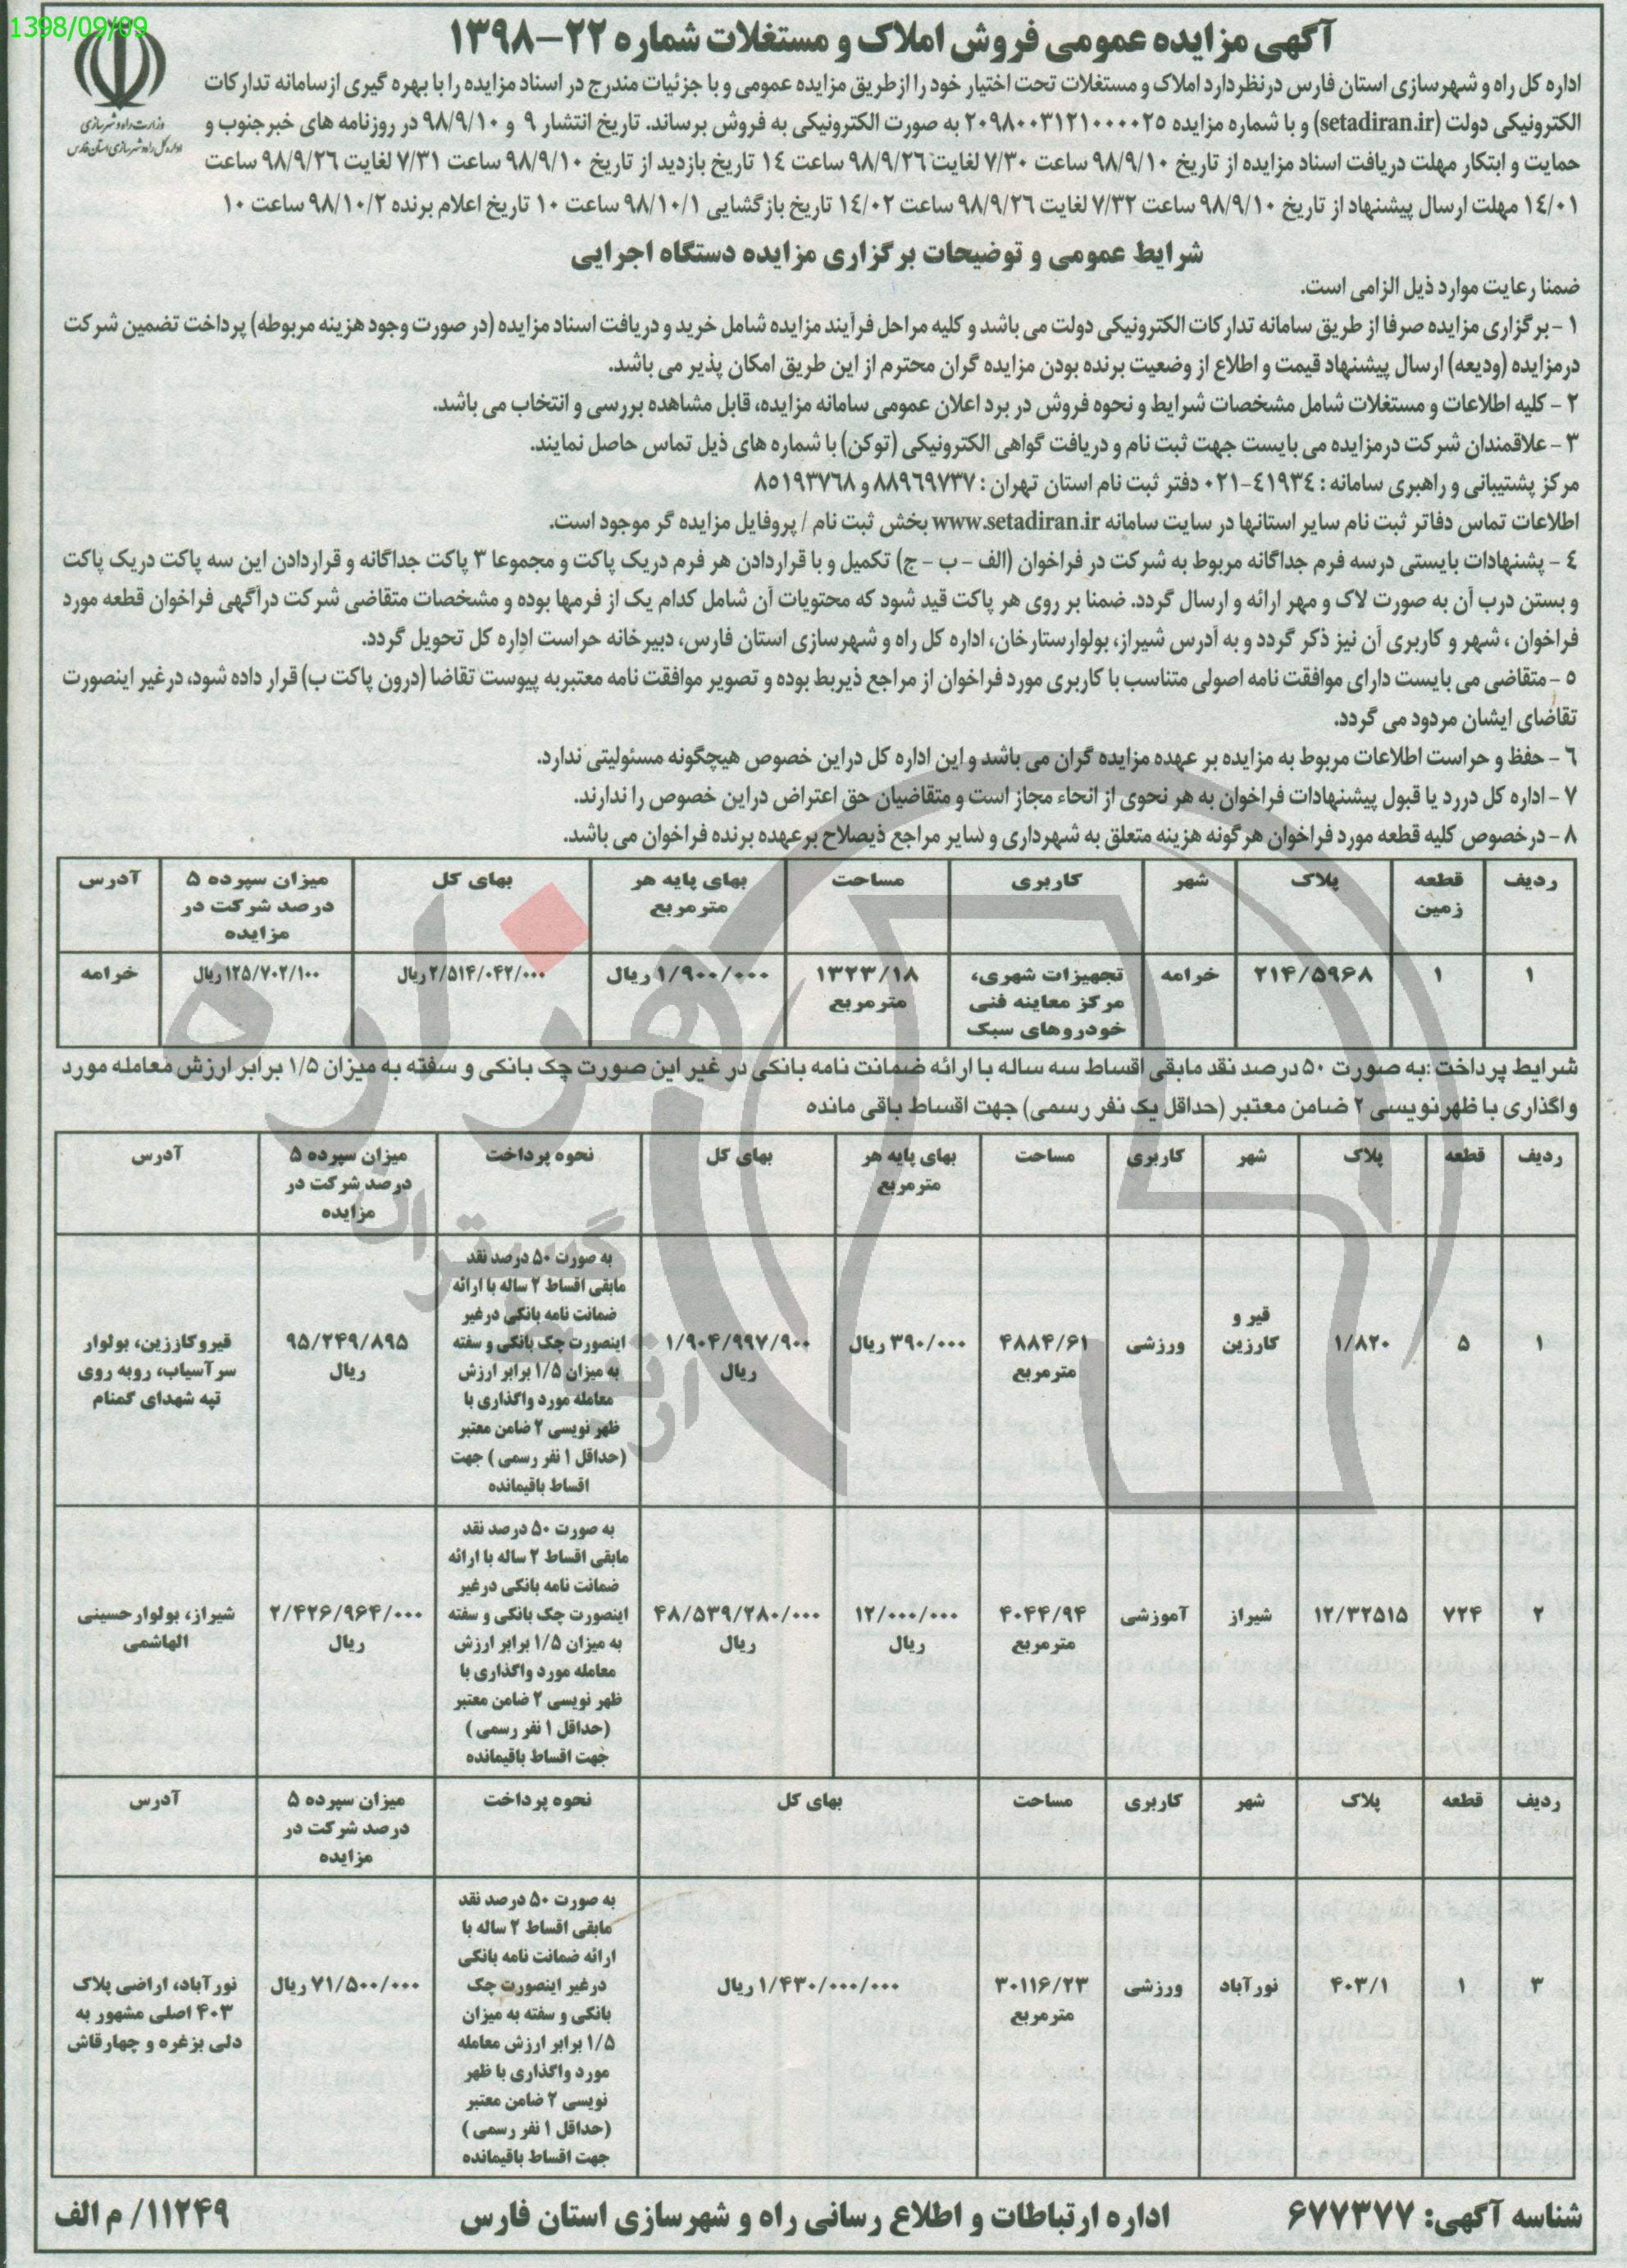 1398/09/09
آگهی مزایده عمومی فروش املاک و مستغلات شماره ۲۲-۱۳۹۸
وزارت راه و شهرسازی
اداره کل راه و شهرسازی استان فارس
اداره کل راه و شهرسازی استان فارس درنظر دارد املاک و مستغلات تحت اختیار خود را از طریق مزایده عمومی و با جزئیات مندرج در اسناد مزایده را با بهره گیری از سامانه تدارکات
الکترونیکی دولت (setadiran.ir) و با شماره مزایده ۲۰۹۸۰۰۳۱۲۱۰۰۰۰۲۵ به صورت الکترونیکی به فروش برساند. تاریخ انتشار ۹ و ۹۸/۹/۱۰ در روزنامه های خبرجنوب و
حمایت و ابتکار مهلت دریافت اسناد مزایده از تاریخ ۹۸/۹/۱۰ ساعت ۷/۳۰ لغایت ۹۸/۹/۲۶ ساعت ۱۴ تاریخ بازدید از تاریخ ۹۸/۹/۱۰ ساعت ۷/۳۱ لغایت ۹۸/۹/۲۶ ساعت
۱۴/۰۱ مهلت ارسال پیشنهاد از تاریخ ۹۸/۹/۱۰ ساعت ۷/۳۲ لغایت ۹۸/۹/۲۶ ساعت ۱۴/۰۲ تاریخ بازگشایی ۹۸/۱۰/۱ ساعت ۱۰ تاریخ اعلام برنده ۹۸/۱۰/۲ ساعت ۱۰
شرایط عمومی و توضیحات برگزاری مزایده دستگاه اجرایی
ضمنا رعایت موارد ذیل الزامی است.
۱ – برگزاری مزایده صرفا از طریق سامانه تدارکات الکترونیکی دولت می باشد و کلیه مراحل فرآیند مزایده شامل خرید و دریافت اسناد مزایده (در صورت وجود هزینه مربوطه) پرداخت تضمین شرکت
درمزایده (ودیعه) ارسال پیشنهاد قیمت و اطلاع از وضعیت برنده بودن مزایده گران محترم از این طریق امکان پذیر می باشد.
۲ – کلیه اطلاعات و مستغلات شامل مشخصات شرایط و نحوه فروش در برد اعلان عمومی سامانه مزایده، قابل مشاهده بررسی و انتخاب می باشد.
۳ – علاقمندان شرکت درمزایده می بایست جهت ثبت نام و دریافت گواهی الکترونیکی (توکن) با شماره های ذیل تماس حاصل نمایند.
مرکز پشتیبانی و راهبری سامانه : ۴۱۹۳۴-۰۲۱ دفتر ثبت نام استان تهران : ۸۸۹۶۹۷۳۷ و ۸۵۱۹۳۷۶۸
اطلاعات تماس دفاتر ثبت نام سایر استانها در سایت سامانه www.setadiran.ir بخش ثبت نام / پروفایل مزایده گر موجود است.
۴ – پشنهادات بایستی درسه فرم جداگانه مربوط به شرکت در فراخوان (الف – ب – ج) تکمیل و با قراردادن هر فرم دریک پاکت و مجموعا ۳ پاکت جداگانه و قراردادن این سه پاکت دریک پاکت
و بستن درب آن به صورت لاک و مهر ارائه و ارسال گردد. ضمنا بر روی هر پاکت قید شود که محتویات آن شامل کدام یک از فرمها بوده و مشخصات متقاضی شرکت درآگهی فراخوان قطعه مورد
فراخوان ، شهر و کاربری آن نیز ذکر گردد و به آدرس شیراز، بولوارستارخان، اداره کل راه و شهرسازی استان فارس، دبیرخانه حراست اداره کل تحویل گردد.
۵ – متقاضی می بایست دارای موافقت نامه اصولی متناسب با کاربری مورد فراخوان از مراجع ذیربط بوده و تصویر موافقت نامه معتبربه پیوست تقاضا (درون پاکت ب) قرار داده شود، درغیر اینصورت
تقاضای ایشان مردود می گردد.
۶ – حفظ و حراست اطلاعات مربوط به مزایده بر عهده مزایده گران می باشد و این اداره کل دراین خصوص هیچگونه مسئولیتی ندارد.
۷ – اداره کل دررد یا قبول پیشنهادات فراخوان به هر نحوی از انحاء مجاز است و متقاضیان حق اعتراض دراین خصوص را ندارند.
۸ – درخصوص کلیه قطعه مورد فراخوان هرگونه هزینه متعلق به شهرداری و سایر مراجع ذیصلاح برعهده برنده فراخوان می باشد.
ردیف قطعه زمین پلاک شهر کاربری مساحت بهای پایه هر مترمربع بهای کل میزان سپرده ۵ درصد شرکت در مزایده آدرس
۱ ۱ ۲۱۴/۵۹۶۸ خرامه تجهیزات شهری، مرکز معاینه فنی خودروهای سبک ۱۳۲۳/۱۸ مترمربع ۱/۹۰۰/۰۰۰ ریال ۲/۵۱۴/۰۴۲/۰۰۰ ریال ۱۲۵/۷۰۲/۱۰۰ ریال خرامه
شرایط پرداخت :به صورت ۵۰ درصد نقد مابقی اقساط سه ساله با ارائه ضمانت نامه بانکی در غیر این صورت چک بانکی و سفته به میزان ۱/۵ برابر ارزش معامله مورد
واگذاری با ظهرنویسی ۲ ضامن معتبر (حداقل یک نفر رسمی) جهت اقساط باقی مانده
ردیف قطعه پلاک شهر کاربری مساحت بهای پایه هر مترمربع بهای کل نحوه پرداخت میزان سپرده ۵ درصد شرکت در مزایده آدرس
۱ ۵ ۱/۸۲۰ قیر و کارزین ورزشی ۴۸۸۴/۶۱ مترمربع ۳۹۰/۰۰۰ ریال ۱/۹۰۴/۹۹۷/۹۰۰ ریال به صورت ۵۰ درصد نقد مابقی اقساط ۲ ساله با ارائه ضمانت نامه بانکی درغیر اینصورت چک بانکی و سفته به میزان ۱/۵ برابر ارزش معامله مورد واگذاری با ظهر نویسی ۲ ضامن معتبر (حداقل ۱ نفر رسمی ) جهت اقساط باقیمانده ۹۵/۲۴۹/۸۹۵ ریال قیروکازرین، بولوار سرآسیاب، روبه روی تپه شهدای گمنام
۲ ۷۲۴ ۱۲/۳۲۵۱۵ شیراز آموزشی ۴۰۴۴/۹۴ مترمربع ۱۲/۰۰۰/۰۰۰ ریال ۴۸/۵۳۹/۲۸۰/۰۰۰ ریال به صورت ۵۰ درصد نقد مابقی اقساط ۲ ساله با ارائه ضمانت نامه بانکی درغیر اینصورت چک بانکی و سفته به میزان ۱/۵ برابر ارزش معامله مورد واگذاری با ظهر نویسی ۲ ضامن معتبر (حداقل ۱ نفر رسمی ) جهت اقساط باقیمانده ۲/۴۲۶/۹۶۴/۰۰۰ ریال شیراز، بولوارحسینی الهاشمی
ردیف قطعه پلاک شهر کاربری مساحت بهای کل نحوه پرداخت میزان سپرده ۵ درصد شرکت در مزایده آدرس
۳ ۱ ۴۰۳/۱ نورآباد ورزشی ۳۰۱۱۶/۲۳ مترمربع ۱/۴۳۰/۰۰۰/۰۰۰ ریال به صورت ۵۰ درصد نقد مابقی اقساط ۲ ساله با ارائه ضمانت نامه بانکی درغیر اینصورت چک بانکی و سفته به میزان ۱/۵ برابر ارزش معامله مورد واگذاری با ظهر نویسی ۲ ضامن معتبر (حداقل ۱ نفر رسمی ) جهت اقساط باقیمانده ۷۱/۵۰۰/۰۰۰ ریال نورآباد، اراضی پلاک ۴۰۳ اصلی مشهور به دلی بزغره و چهارقاش
شناسه آگهی: ۶۷۷۳۷۷ اداره ارتباطات و اطلاع رسانی راه و شهرسازی استان فارس ۱۱۲۴۹/ م الف
هزاره
گستران